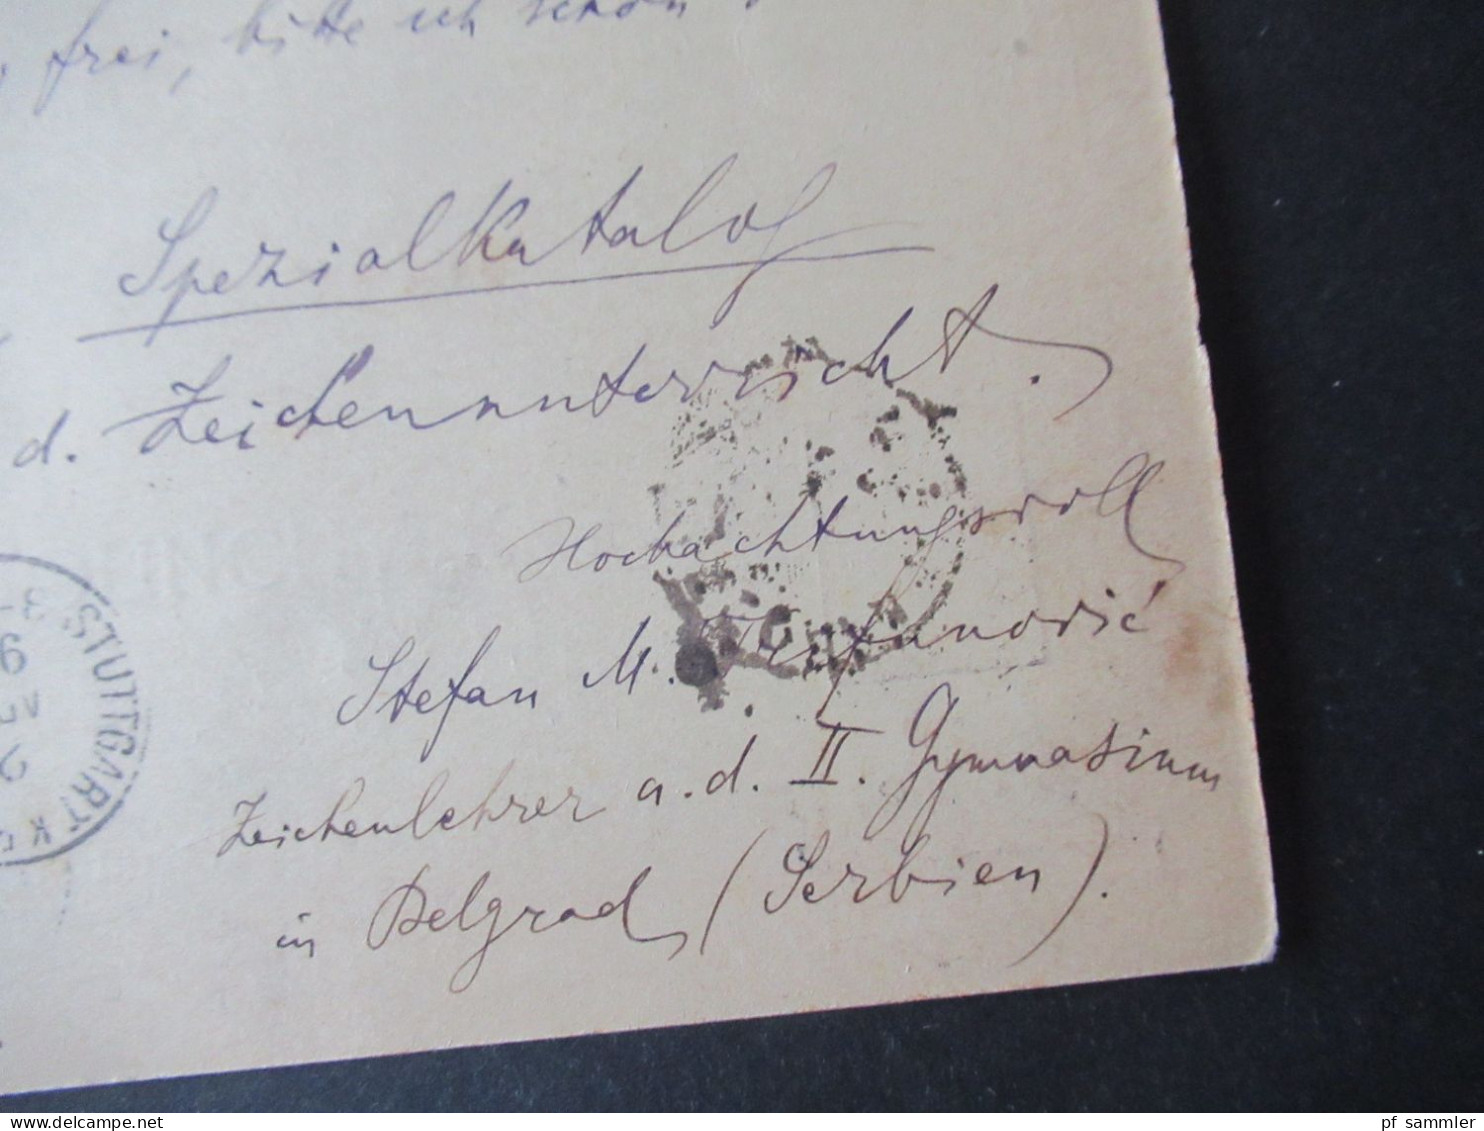 frei, bitte ich schön
Spezialkatalog
d. Zeichenunterricht.
Hochachtungsvoll
Stefan M.
Zeichenlehrer a. d. II. Gymnasium
in Belgrad (Serbien).
STUTTGART
pf sammler